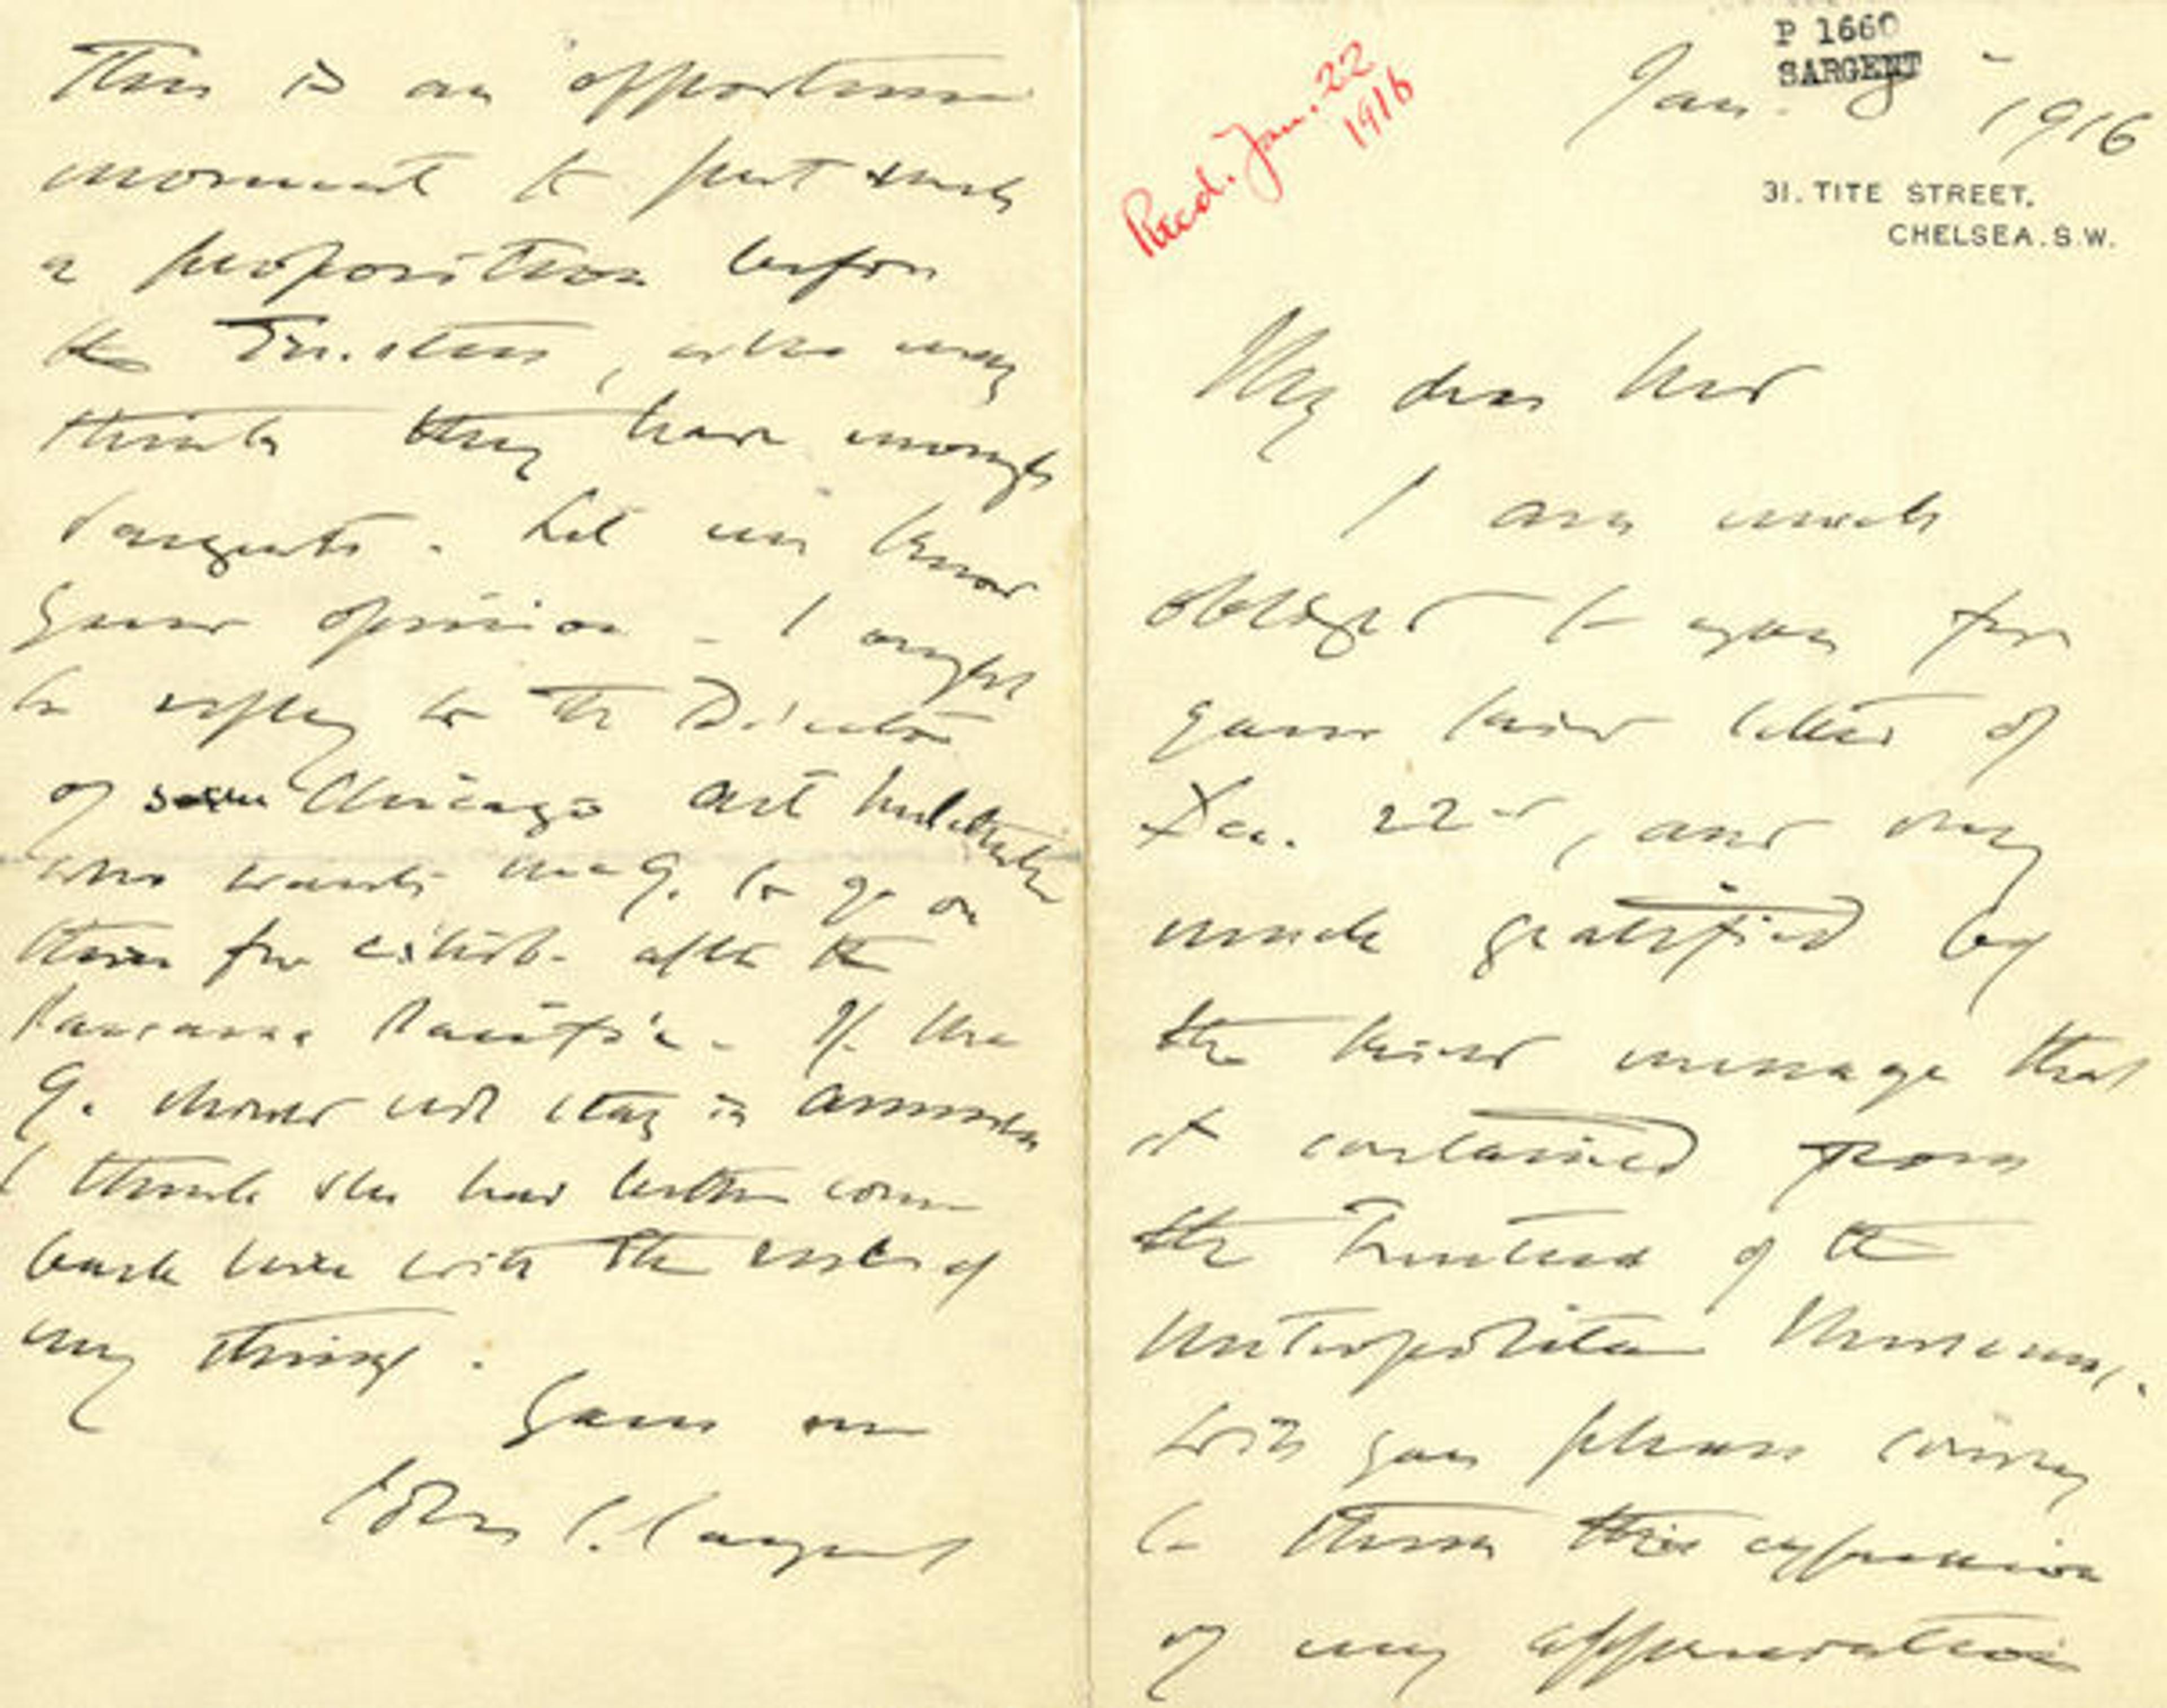 P 1660
SARGENT
Jan. 8 1916
Recd. Jan. 22
1916
31. TITE STREET,
CHELSEA. S.W.
My dear Ned
I am much
obliged to you for
your kind letter of
Dec. 22nd, and very
much gratified by
the kind message that
it contained from
the Trustees of the
Metropolitan Museum.
Will you please convey
to them this expression
of my appreciation
This is an opportune
moment to put such
a proposition before
the Trustees, who may
think they have enough
Sargents. Let me know
your opinion - I ought
to reply to the Director
of some Chicago art institute
who wants Me G. to go on
there for exhib. after the
Panama Pacific. If the
G. should not stay in America
I think she had better come
back here with the rest of
my things.
Yours ever
John S. Sargent